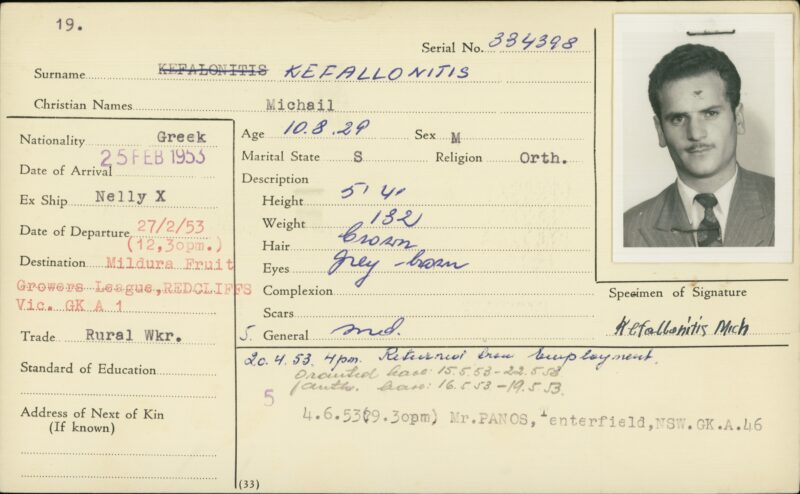 19.
Serial No. 334398
Surname KEFALONITIS KEFALLONITIS
Christian Names Michail
Nationality Greek
Date of Arrival 25 FEB 1953
Ex Ship Nelly X
Date of Departure 27/2/53
(12,3opm.)
Destination Mildura Fruit
Growers League,REDCLIFFS
Vic. GK A 1
Trade Rural Wkr.
Standard of Education
Address of Next of Kin
(If known)
Age 10.8.29 Sex M
Marital State S Religion Orth.
Description
Height 5' 4"
Weight 132
Hair brown
Eyes grey-brown
Complexion
Scars
5. General med.
Specimen of Signature
Kefallonitis Mich
20.4.53. 4pm. Returned from Employment.
Granted leave: 15.5.53-22.5.53
leave: 16.5.53-19.5.53.
5
4.6.53(9.3opm) Mr.PANOS, Tenterfield,NSW.GK.A.46
(33)